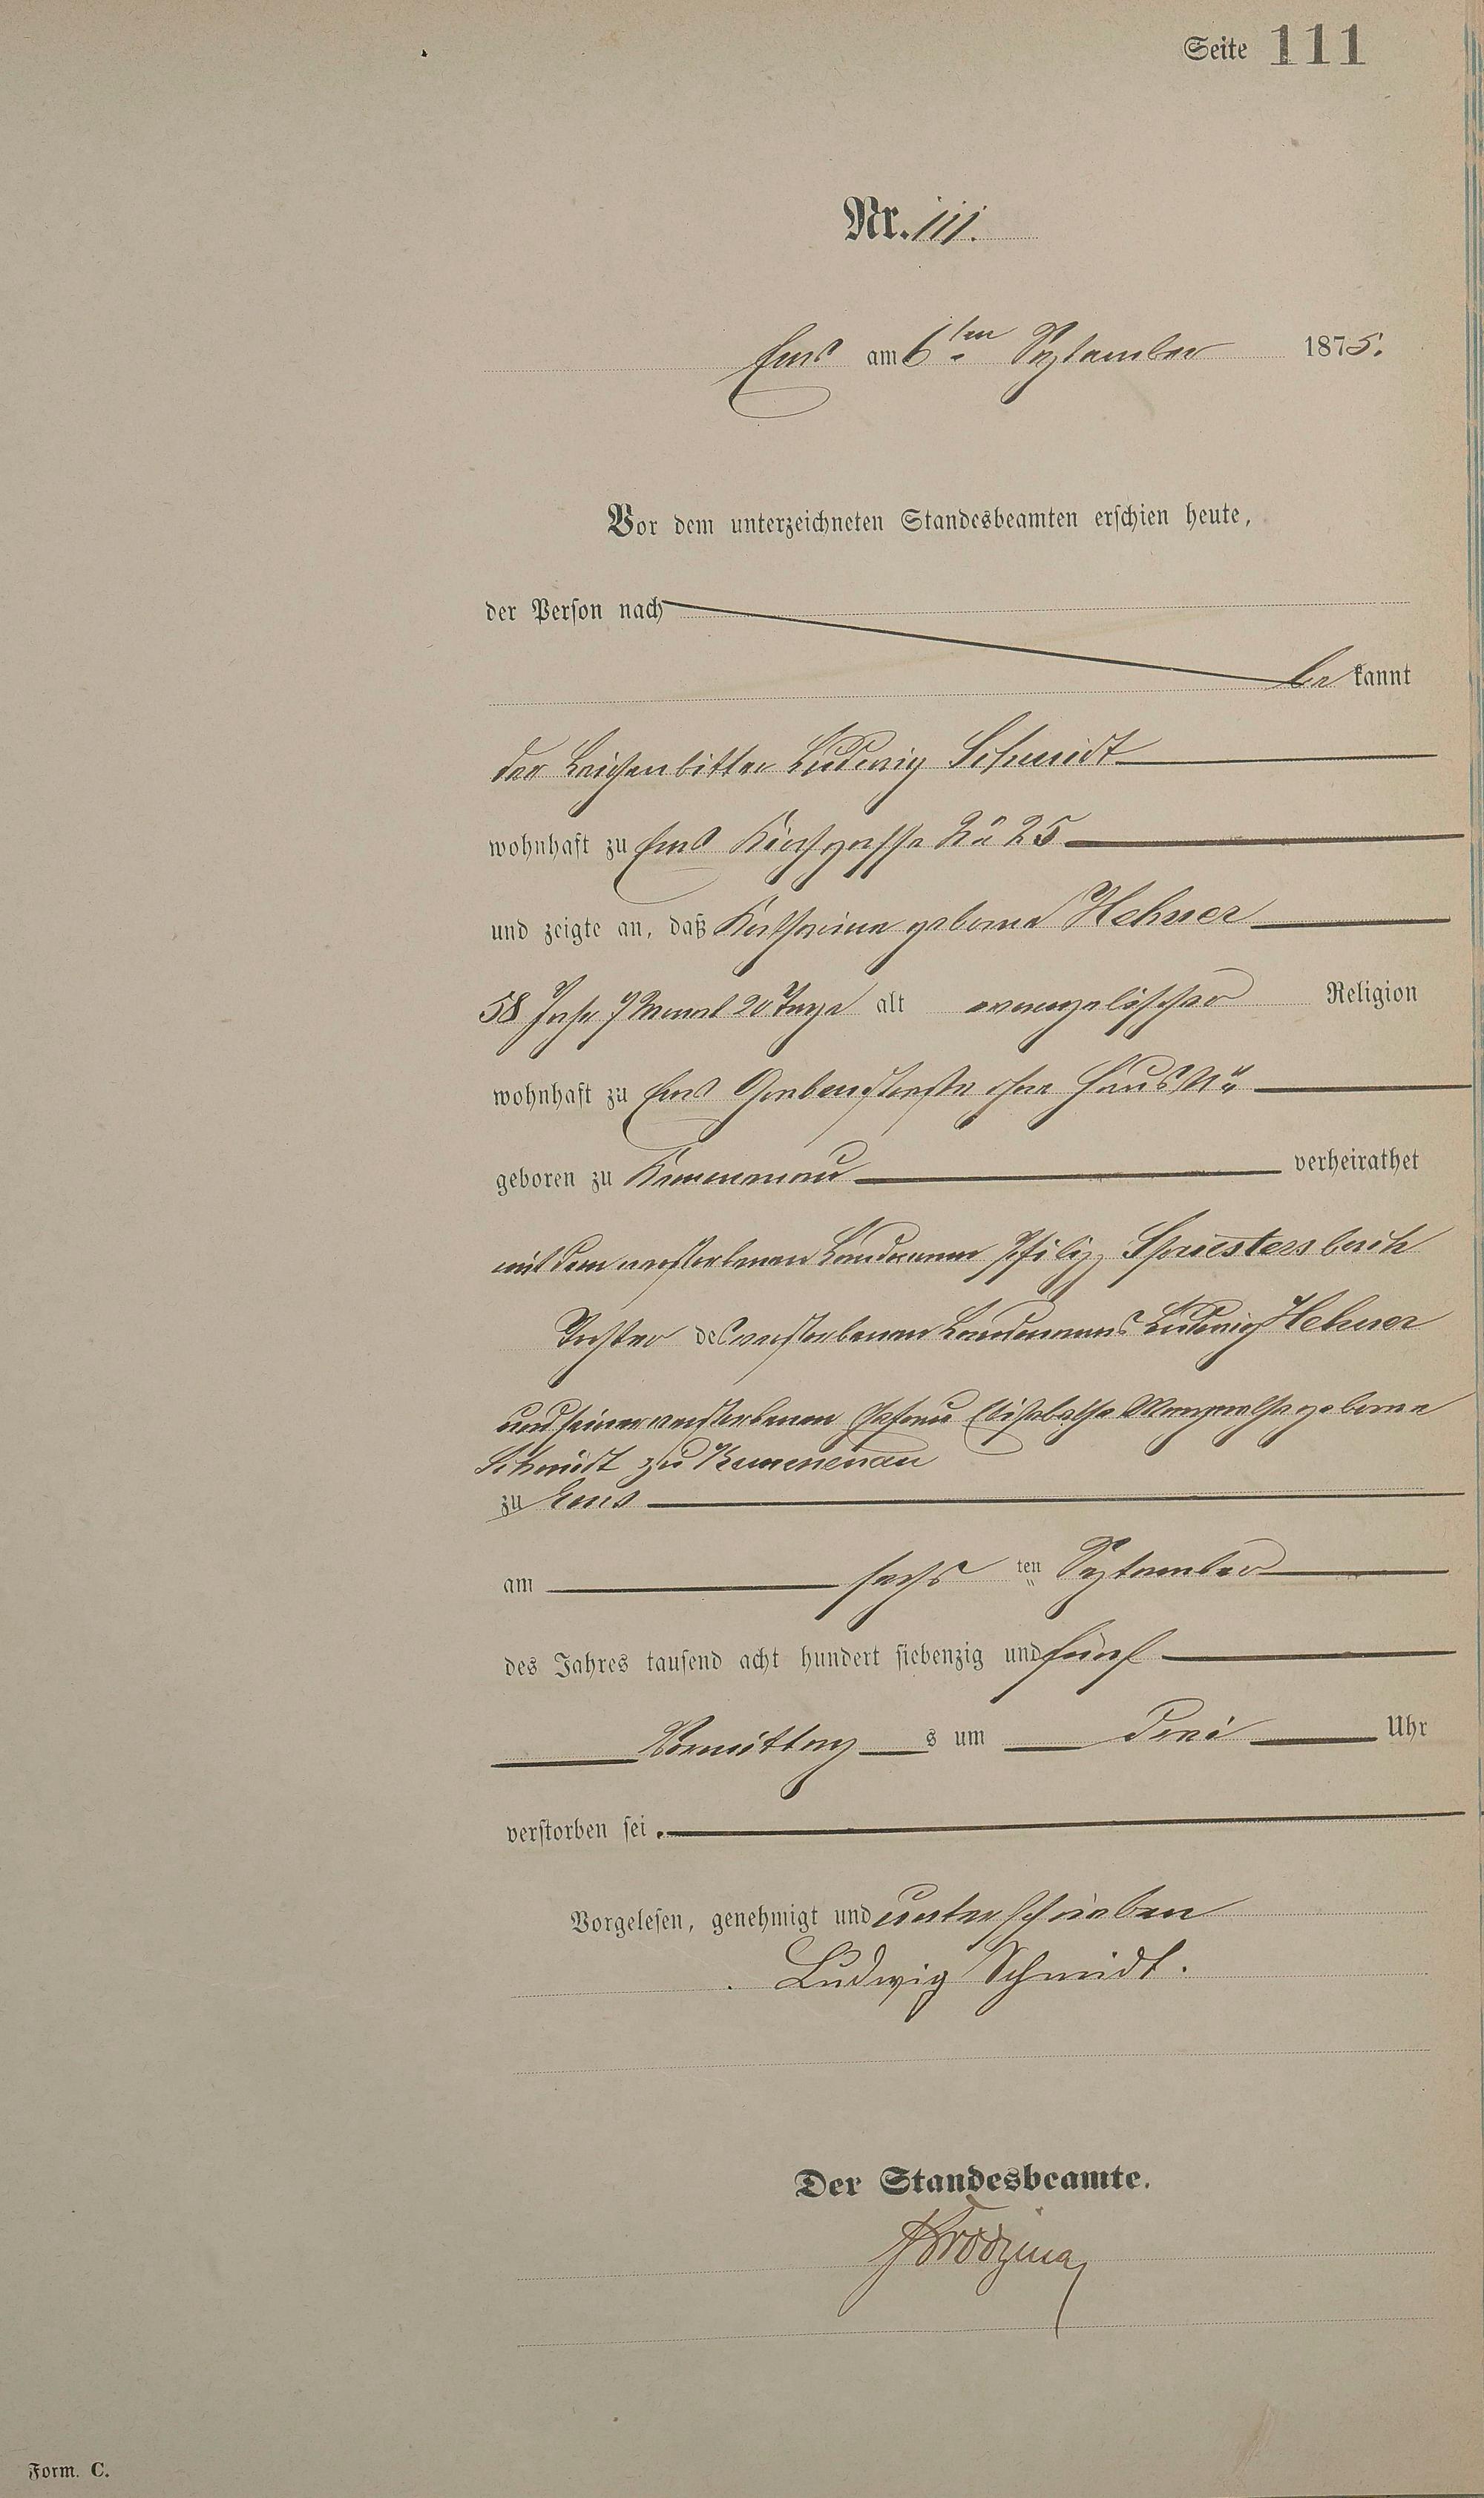 Seite 111
Nr. 111.
Ems am 6ten September 1875.
Vor dem unterzeichneten Standesbeamten erschien heute,
der Person nach
be kannt
der Leichenbitter Ludwig Schmidt
wohnhaft zu Ems Kirchgasse No 25
und zeigte an, daß Katharine geborne Hehner
58 Jahr 7 Monat 20 Tage alt evangelischer Religion
wohnhaft zu Ems Grabenstraße ohne Haus No
geboren zu Kemmenau verheirathet
mit dem verstorbenen Landmann Philipp Spriestersbach
Tochter des verstorbenen Landmanns Ludwig Hehner
und seiner verstorbenen Ehefrau Elisabetha Margretha geborne
Schmidt zu Kemmenau
zu Ems
am sechs ten September
des Jahres tausend acht hundert siebenzig und fünf
Vormittag s um drei Uhr
verstorben sei.
Vorgelesen, genehmigt und unterschrieben
Ludwig Schmidt.
Der Standesbeamte.
Form. C.